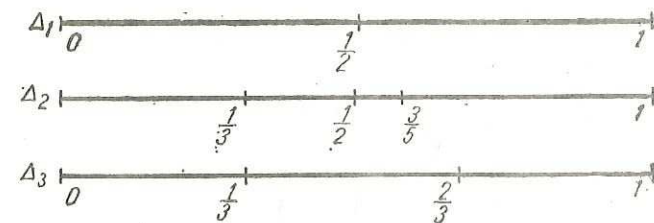 Δ1 0 1/2 1
Δ2 1/3 1/2 3/5 1
Δ3 0 1/3 2/3 1